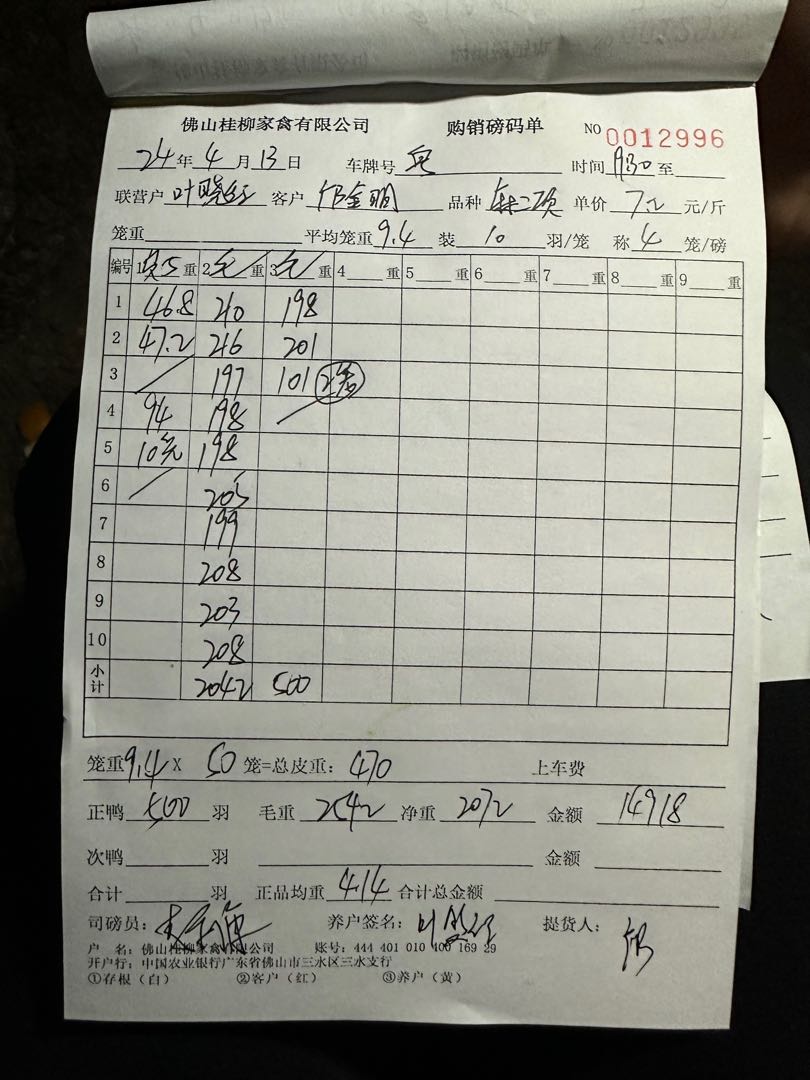 佛山桂柳家禽有限公司 购销磅码单 NO 0012996
24年4月13日 车牌号 时间 930至
联营户 叶 客户 金 品种 麻二项 单价 7.2 元/斤
笼重 平均笼重 9.4 装 10 羽/笼 称 4 笼/磅
编号 1 重 2 毛 重 3 毛 重 4 重 5 重 6 重 7 重 8 重 9 重
1 46.8 210 198
2 47.2 216 201
3 197 101
4 94 198
5 10 198
6 205
7 199
8 208
9 203
10 208
小计 2042 500
笼重9.4X 50 笼=总皮重: 470 上车费
正鸭 500 羽 毛重 2542 净重 2072 金额 14918
次鸭 羽 金额
合计 羽 正品均重 4.14 合计总金额
司磅员: 养户签名: 叶 提货人:
户 名:佛山桂柳家禽有限公司 账号:444 401 010 400 169 29
开户行:中国农业银行广东省佛山市三水区三水支行
①存根(白) ②客户(红) ③养户(黄)